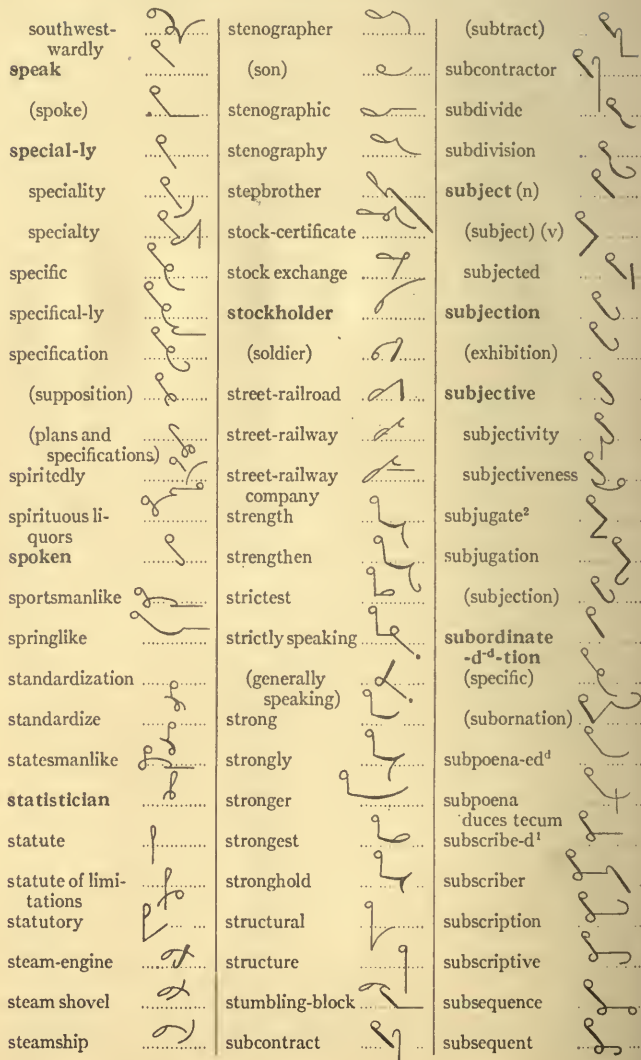 southwest-
wardly
speak
(spoke)
special-ly
speciality
specialty
specific
specifical-ly
specification
(supposition)
(plans and
specifications)
spiritedly
spirituous li-
quors
spoken
sportsmanlike
springlike
standardization
standardize
statesmanlike
statistician
statute
statute of limi-
tations
statutory
steam-engine
steam shovel
steamship
stenographer
(son)
stenographic
stenography
stepbrother
stock-certificate
stock exchange
stockholder
(soldier)
street-railroad
street-railway
street-railway
company
strength
strengthen
strictest
strictly speaking
(generally
speaking)
strong
strongly
stronger
strongest
stronghold
structural
structure
stumbling-block
subcontract
(subtract)
subcontractor
subdivide
subdivision
subject (n)
(subject) (v)
subjected
subjection
(exhibition)
subjective
subjectivity
subjectiveness
subjugate²
subjugation
(subjection)
subordinate
-d-d-tion
(specific)
(subornation)
subpoena-edᵈ
subpoena
duces tecum
subscribe-d¹
subscriber
subscription
subscriptive
subsequence
subsequent